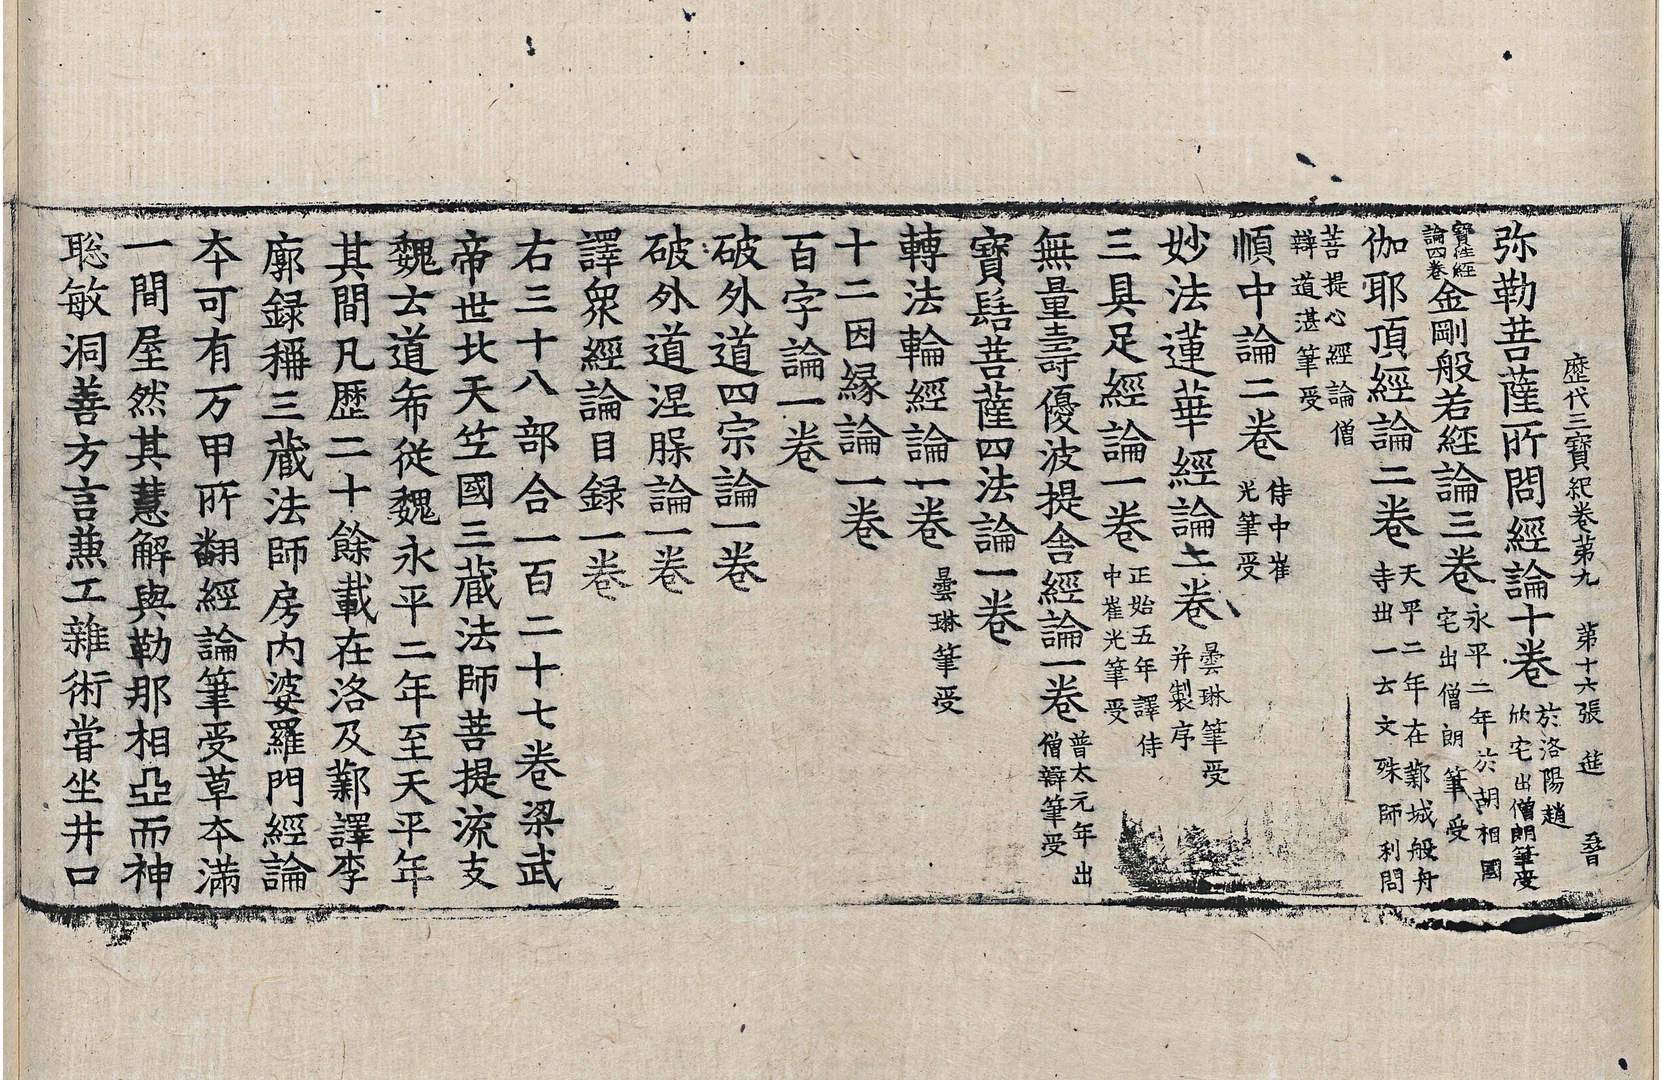 歷代三寶紀卷苐九 苐十六張 莚
弥勒菩薩所問經論十卷 於洛陽趙
欣宅出僧朗筆受
寶積經
論四卷
金剛般若經論三卷 永平二年於胡相國
宅出僧朗筆受
伽耶頂經論二卷 天平二年在鄴城般舟
寺出一云文殊師利問
菩提心經論僧
辯道湛筆受
順中論二卷 侍中崔
光筆受
妙法蓮華經論二卷 曇琳筆受
并製序
三具足經論一卷 正始五年譯侍
中崔光筆受
無量壽優波提舍經論一卷 普太元年出
僧辯筆受
寶髻菩薩四法論一卷
轉法輪經論一卷 曇琳筆受
十二因縁論一卷
百字論一卷
破外道四宗論一卷
破外道涅槃論一卷
譯衆經論目録一卷
右三十八部合一百二十七卷梁武
帝世北天竺國三藏法師菩提流支
魏云道希從魏永平二年至天平年
其間凡歷二十餘載在洛及鄴譯李
廓録稱三藏法師房内婆羅門經論
本可有万甲所翻經論筆受草本滿
一間屋然其慧解與勒那相亞而神
聡敏洞善方言兼工雜術嘗坐井口